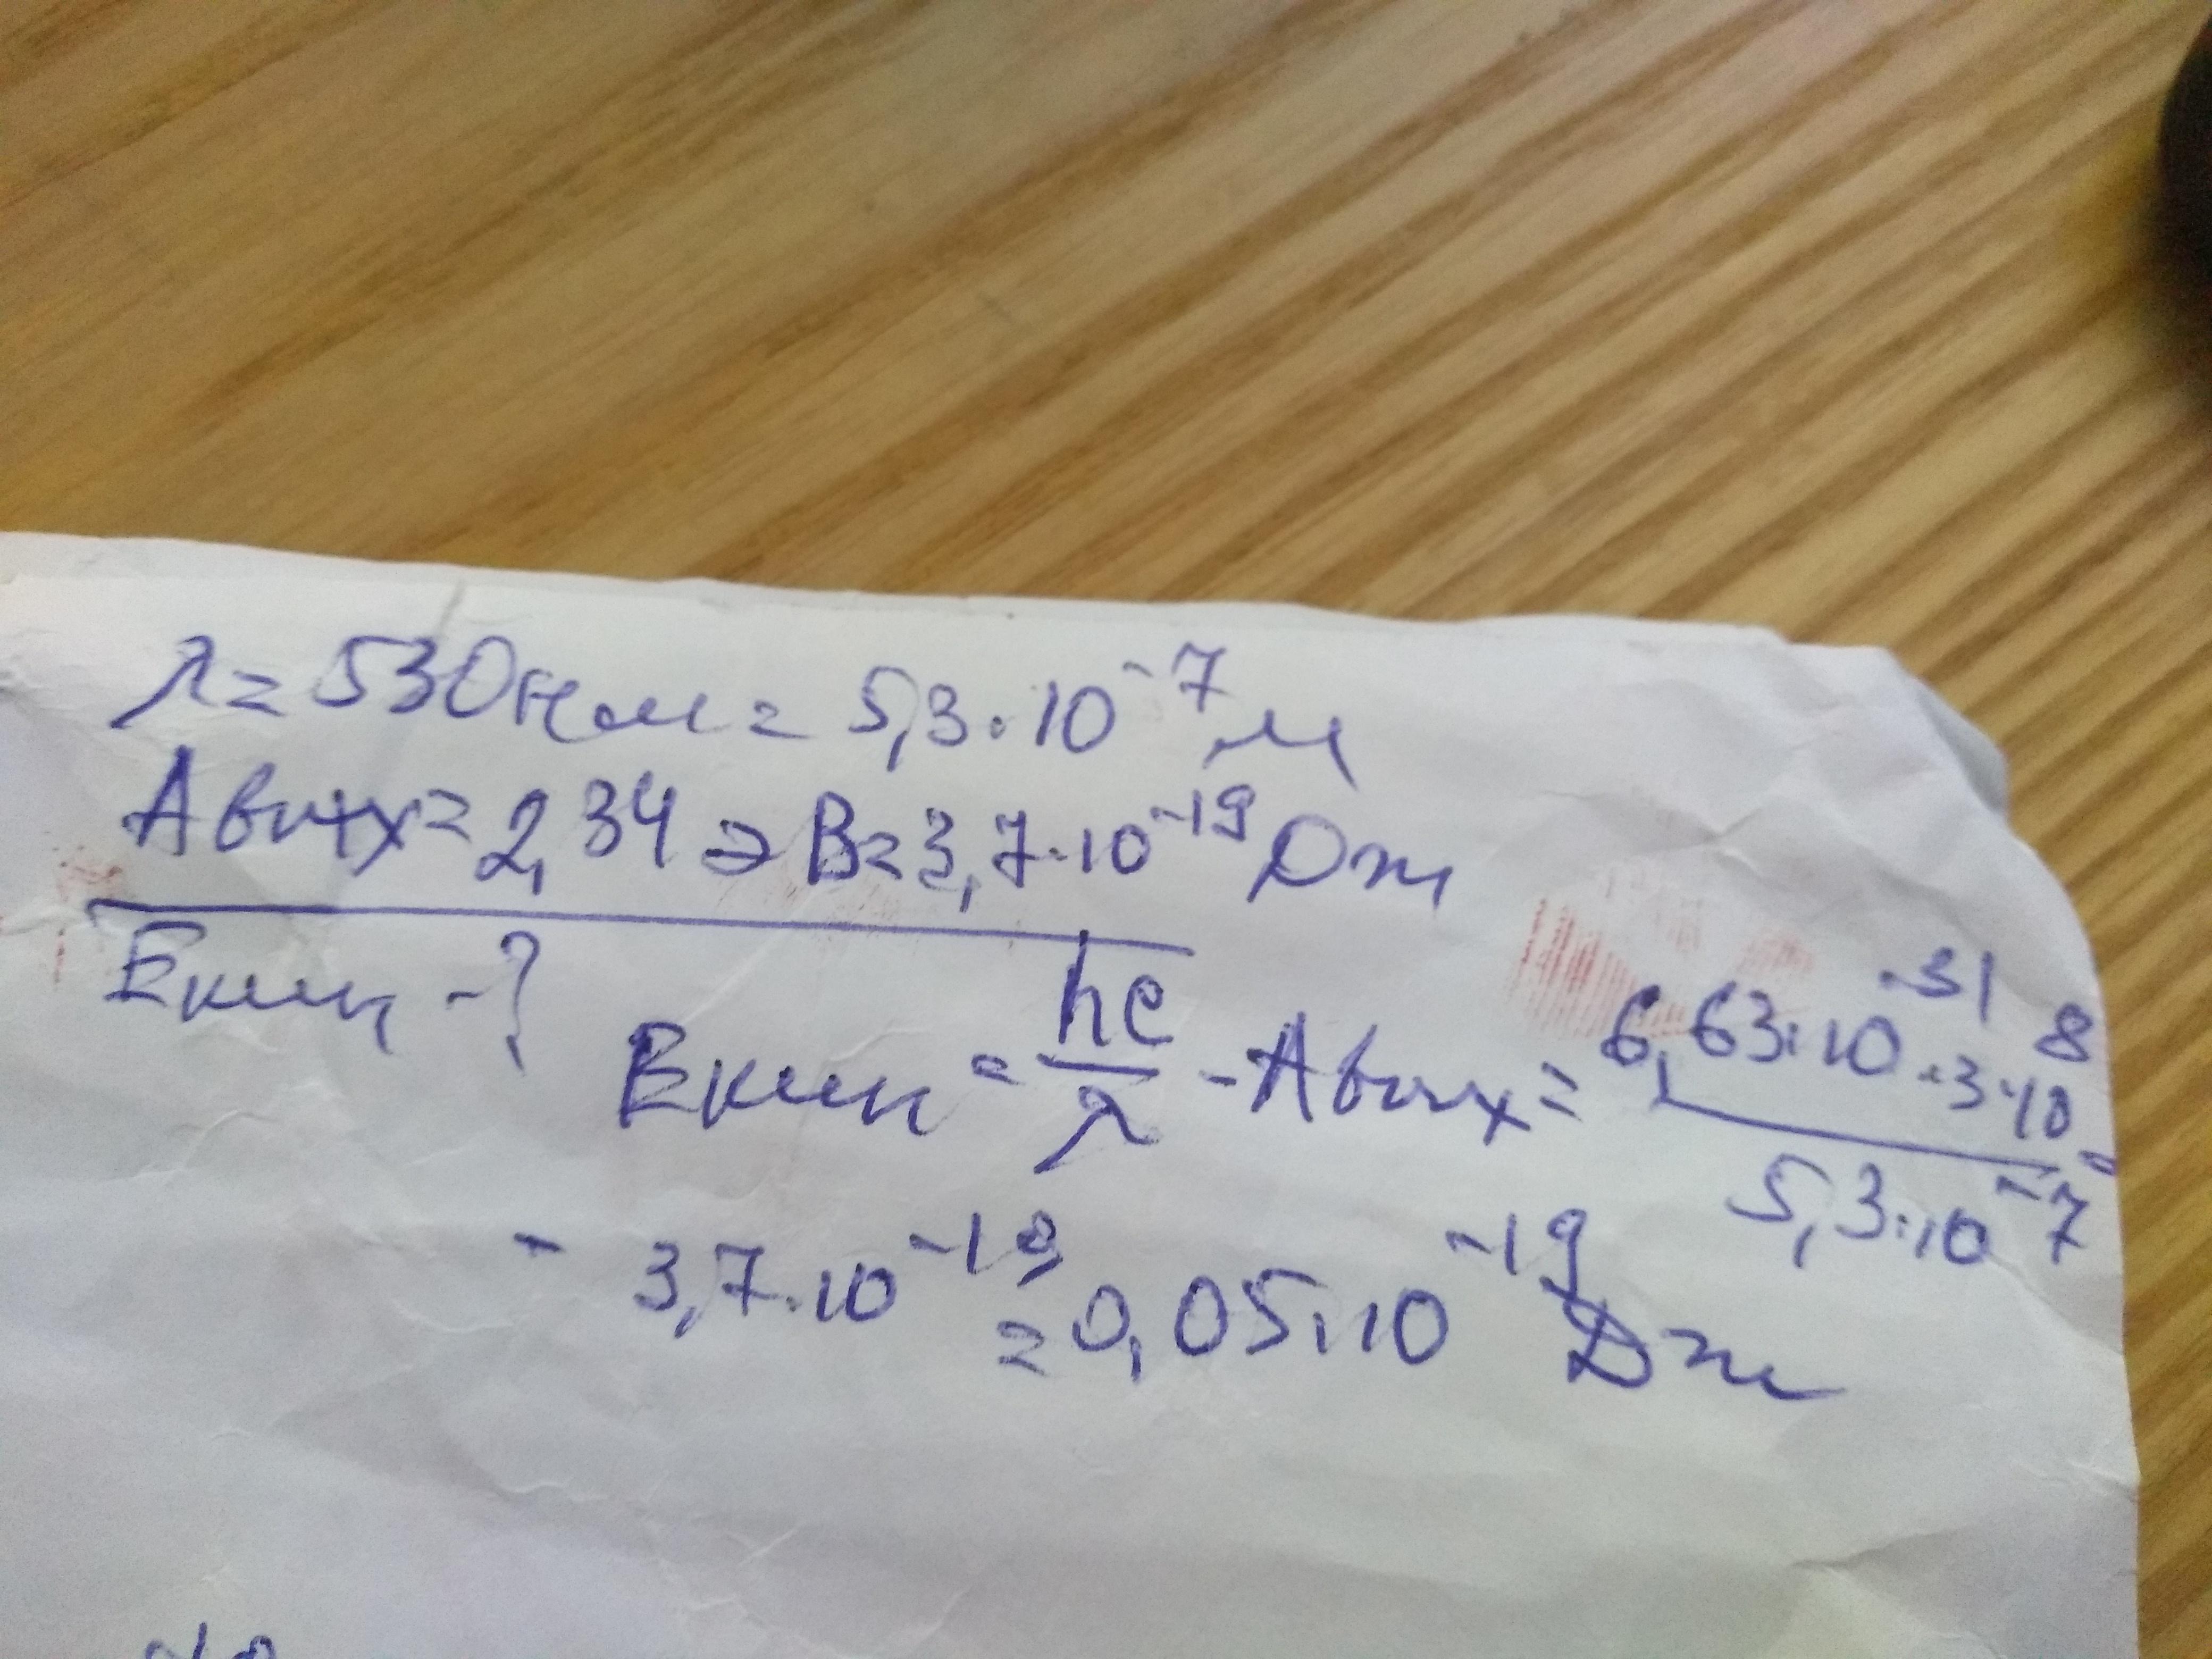 λ = 530 нм = 5,3·10⁻⁷ м
Aвых = 2,34 эВ = 3,7·10⁻¹⁹ Дж
Eкин - ?
Eкин = hc/λ - Aвых = 6,63·10⁻³¹·3·10⁸/5,3·10⁻⁷ -
- 3,7·10⁻¹⁹ = 0,05·10⁻¹⁹ Дж